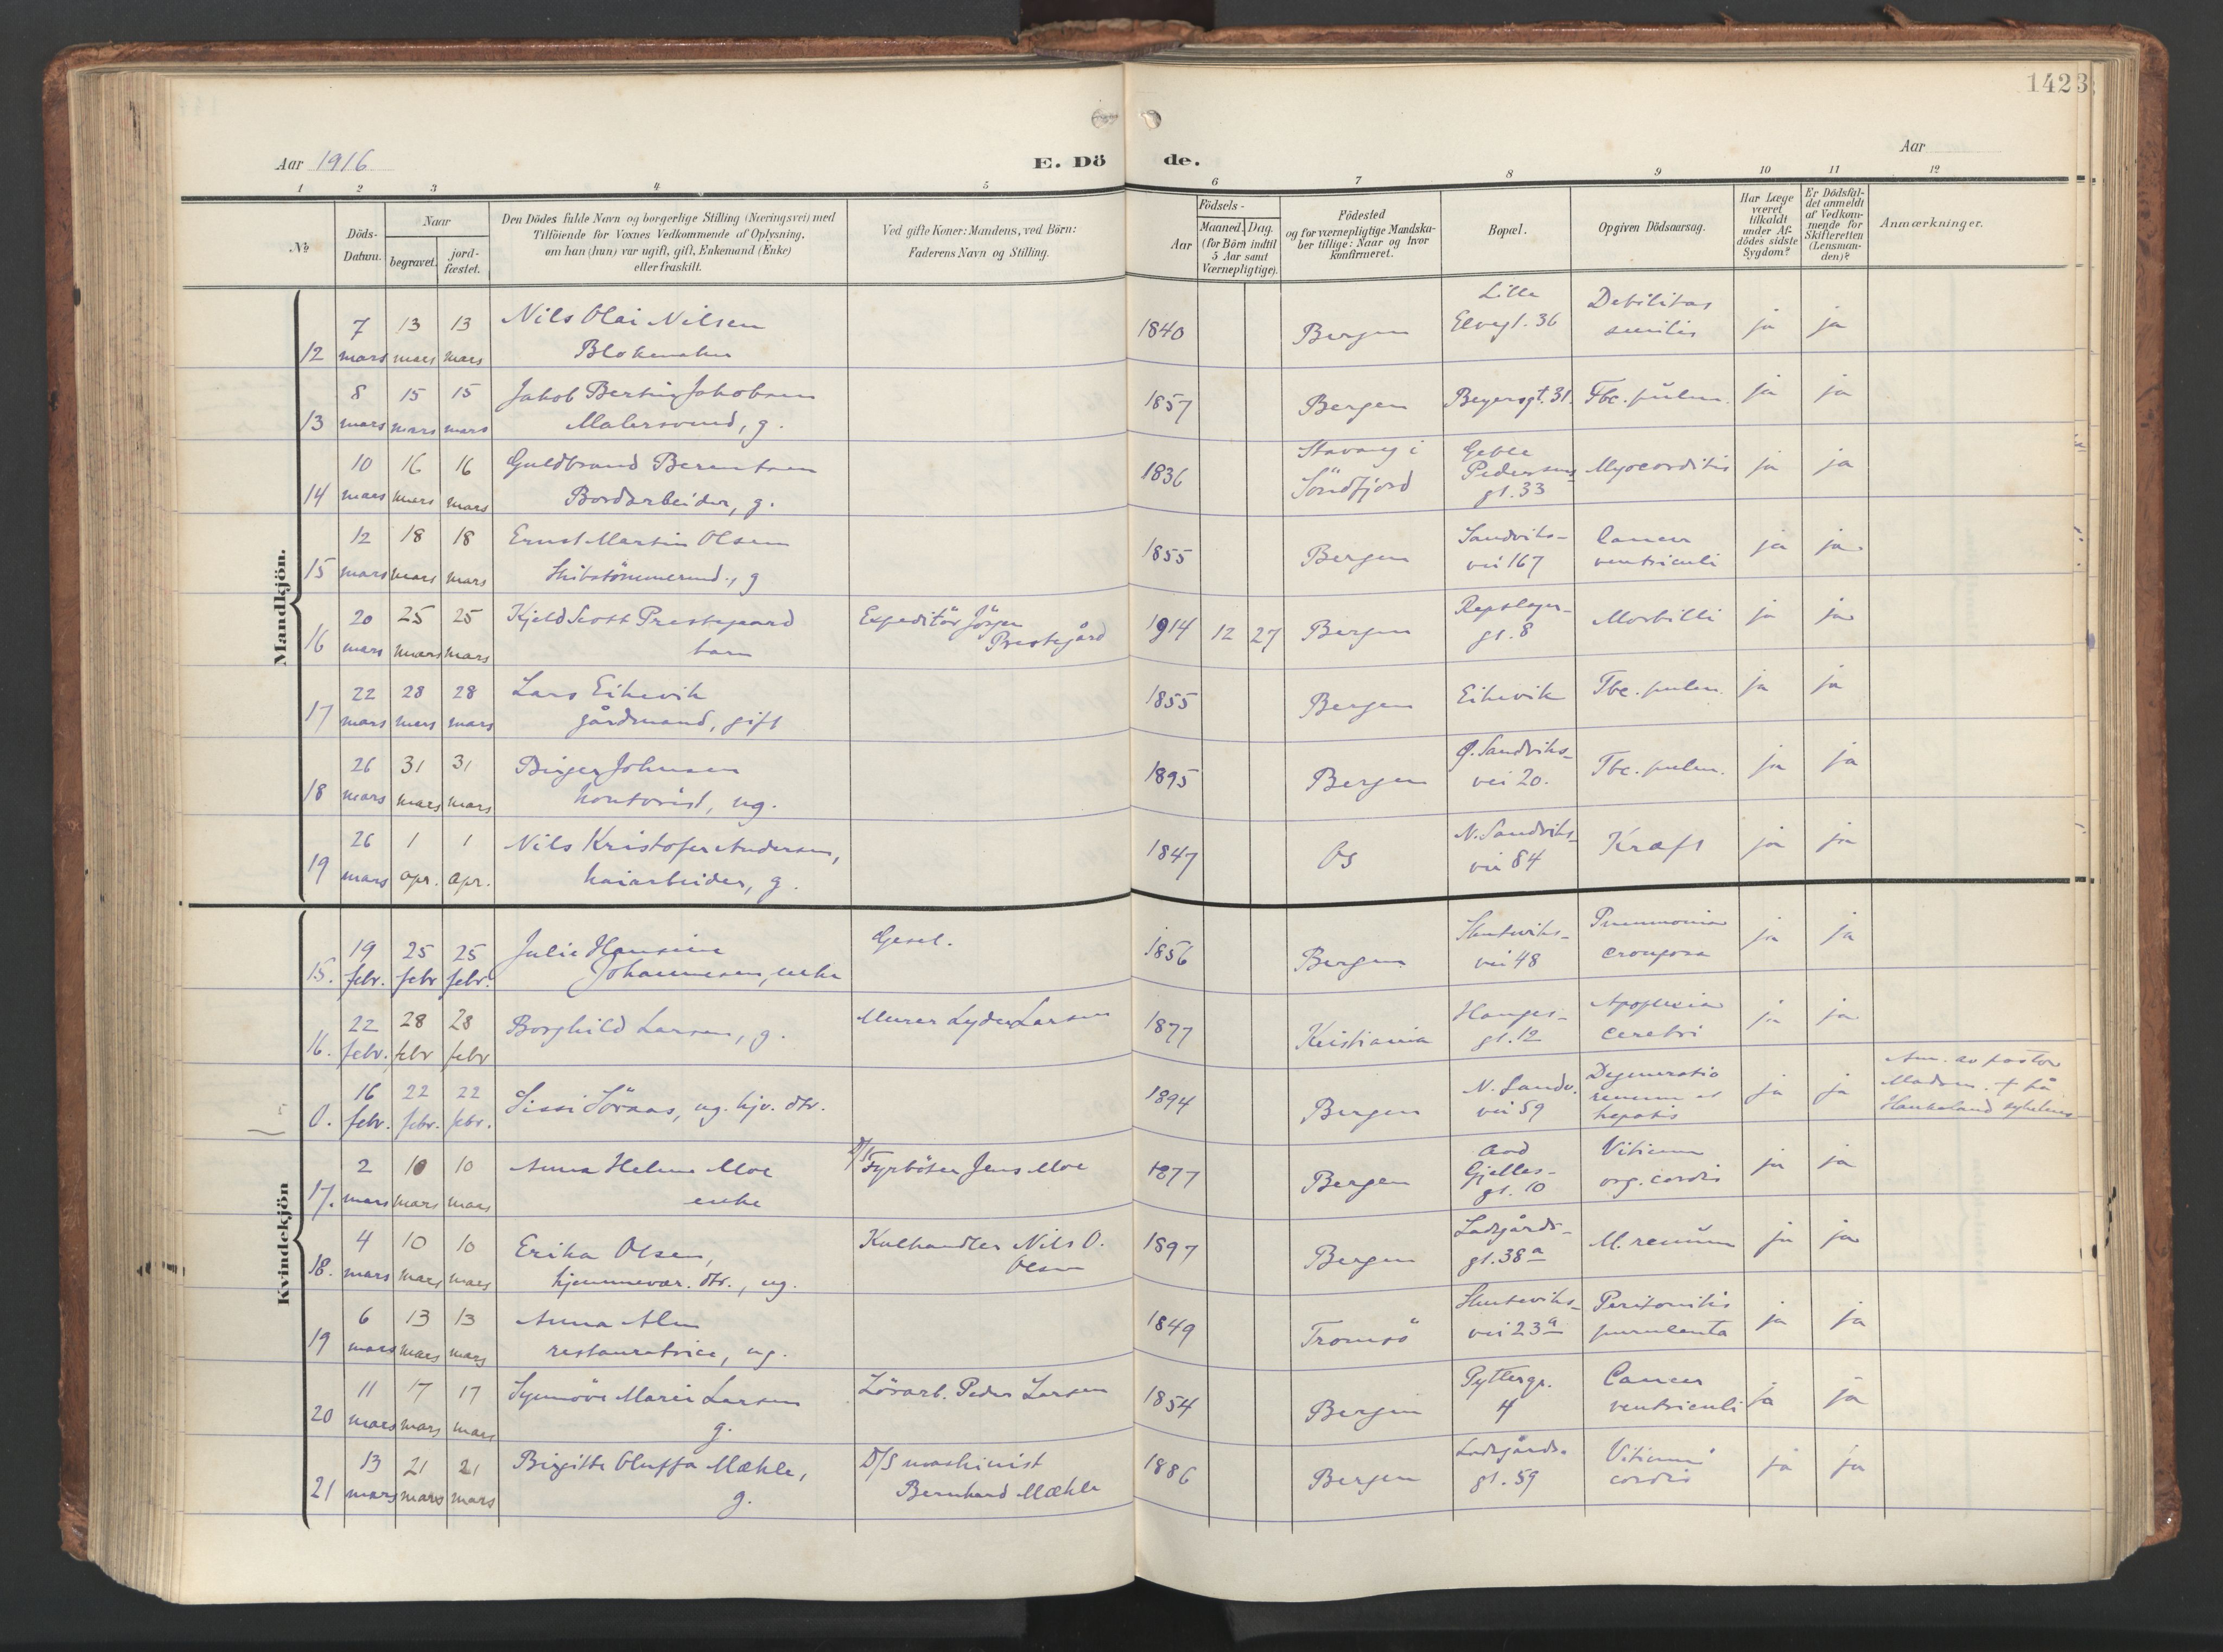 1423
Aar 1916
E. Dö
de.
Aar
1 2 3 4 5 6 7 8 9 10 11 12
No
Döds-Datum.
Naar
begravet.
jord-fæstet.
Den Dödes fulde Navn og borgerlige Stilling (Næringsvei) med
Tilföiende for Voxnes Vedkommende af Oplysning,
om han (hun) var ugift, gift, Enkemand (Enke)
eller fraskilt.
Ved gifte Koner: Mandens, ved Börn:
Faderens Navn og Stilling.
Födsels-
Aar
Maaned. Dag.
(for Börn indtil
5 Aar samt
Værnepligtige).
Födested
og for værnepligtige Mandska-
ber tillige: Naar og hvor
konfirmeret.
Bopæl.
Opgiven Dödsaarsag.
Har Læge
været
tilkaldt
under Af-
dödes sidste
Sygdom?
Er Dödsfal-
det anmeldt
af Vedkom-
mende for
Skifteretten
(Lensman-
den)?
Anmærkninger.
Mandkjön.
12 7 mars 13 mars 13 mars Nils Olai Nilsen
Blokmaker
1840 Bergen Lille Elvegt. 36 Debilitas senilis ja ja
13 8 mars 15 mars 15 mars Jakob Bertin Jakobsen
Malersvend, g.
1857 Bergen Beyersgt. 31. Tbc. pulm. ja ja
14 10 mars 16 mars 16 mars Guldbrand Berentsen
Bordarbeider, g.
1836 Stavang i Söndfjord Geble Pedersens gt. 33 Myocorditis ja ja
15 12 mars 18 mars 18 mars Ernst Martin Olsen
Skibstömmermd., g
1855 Bergen Sandviks-vei 167 Cancer ventriculi ja ja
16 20 mars 25 mars 25 mars Kjeld Scott Prestegaard
barn
Expeditör Jörgen Prestegård
1914 12 27 Bergen Repslager-gt. 8 Morbilli ja ja
17 22 mars 28 mars 28 mars Lars Eikevik
gårdmand, gift
1855 Bergen Eikevik Tbc. pulm. ja ja
18 26 mars 31 mars 31 mars Birger Johnsen
kontorist, ug.
1895 Bergen Ø. Sandviks-vei 20. Tbc. pulm. ja ja
19 26 mars 1 apr. 1 apr. Nils Kristofer Andersen,
kaiarbeider, g.
1847 Os N. Sandviks-vei 84 Kræft ja ja
Kvindekjön
15. 19 febr. 25 febr 25 febr. Julie Hansine
Johannessen, enke
Gesel.
1856 Bergen Skuteviks-vei 48 Pneumonia crouposa ja ja
16. 22 febr. 28 febr 28 febr Borghild Larsen, g.
Murer Lyder Larsen
1877 Kristiania Hauges-gt. 12 Apoplexia cerebri ja ja
0. 16 febr. 22 febr. 22 febr. Sissi Söraas, ug. hjv. dtr.
1894 Bergen N. Sandv. vei 59 Degeneratio renum et hepatis ja ja
Anm. av pastor
Madsen. † på
Haukeland sykehus
17. 2 mars 10 mars 10 mars Anna Helene Moe
enke
D/S Fyrböter Jens Moe
1877 Bergen Aad Gjelles-gt. 10 Vitium org. cordis ja ja
18. 4 mars 10 mars 10 mars Erika Olsen,
hjemmevær. dtr., ug.
Kulhandler Nils O. Olsen
1897 Bergen Ladegårds-gt. 38a M. renum ja ja
19 6 mars 13 mars 13 mars Anna Alm
restauratrice, ug.
1849 Tromsö Skuteviks-vei 23a Peritonitis purulenta ja ja
20 11 mars 17 mars 17 mars Synnöve Marie Larsen
g.
Lösarb. Peder Larsen
1854 Bergen Pyttergr. 4 Cancer ventriculi ja ja
21 13 mars 21 mars 21 mars Birgitte Oluffa Mæhle,
g.
D/S maskinist
Bernhard Mæhle
1886 Bergen Ladegårds-gt. 59 Vitium cordis ja ja